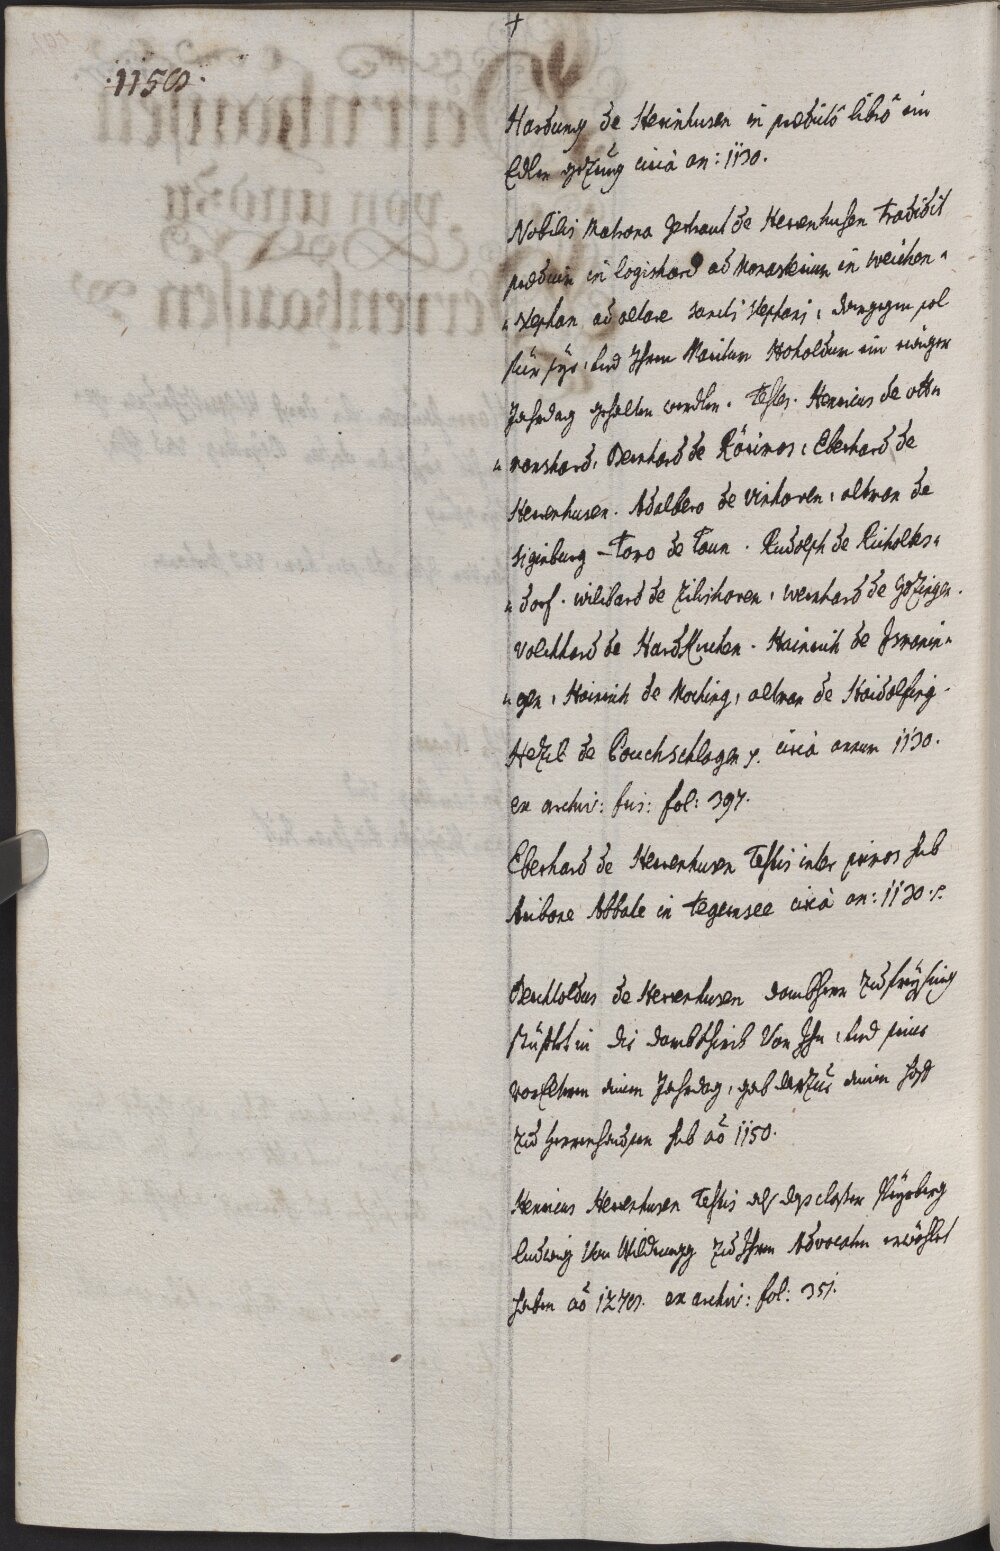 +
.1150.
Hardung de Herinhusen in prædictô librô ein
Edlen gezeug circà an: 1130.
Nobilis Matrona Gertraut de Herenhusen tradidit
prædium in Logishard ad Monasterium in Weichen=
=stephan ad altare sancti Stephani, dargegen sol
für sye, und Ihrem Maritum Hoholdum ein ewiger
Jahrdag gehalten werdten. Testes. Henricus de otten
=manshard, Bernhard de Rörmos, Eberhard de
Herenhusen. Adalbero de Vinhoven, altman de
Siginburg Toro de Taun. Rudolph de Richolts=
=dorf. wilibard de Zilishoven, wernhard de Gozingen.
Volckhard de Hardkirchen. Hainrich de Ismanin=
=gen, Hainrich de Moching, altman de Haidolfing.
Hezil de Bouchschlagen p. circà annum 1130.
ex archiv: fris: fol: 397.
Eberhard de Herenhusen Testis inter primos sub
Aribone Abbate in Tegernsee circà an: 1130. p.
Berchtoldus de Herenhusen dombherr zu freysing
stüfftet in die dombkhirch Von Ihm, und seine
vorEltern einen Jahrdag, gab darzue einen hoff
zu herrenhausen sub aō 1150.
Henricus Herenhusen Testis als das closter Neyberg
Ludwig Von Wildnegg zu Ihrem Advocatn erwöhlt
haben aō 1270. ex archiv: fol: 351.